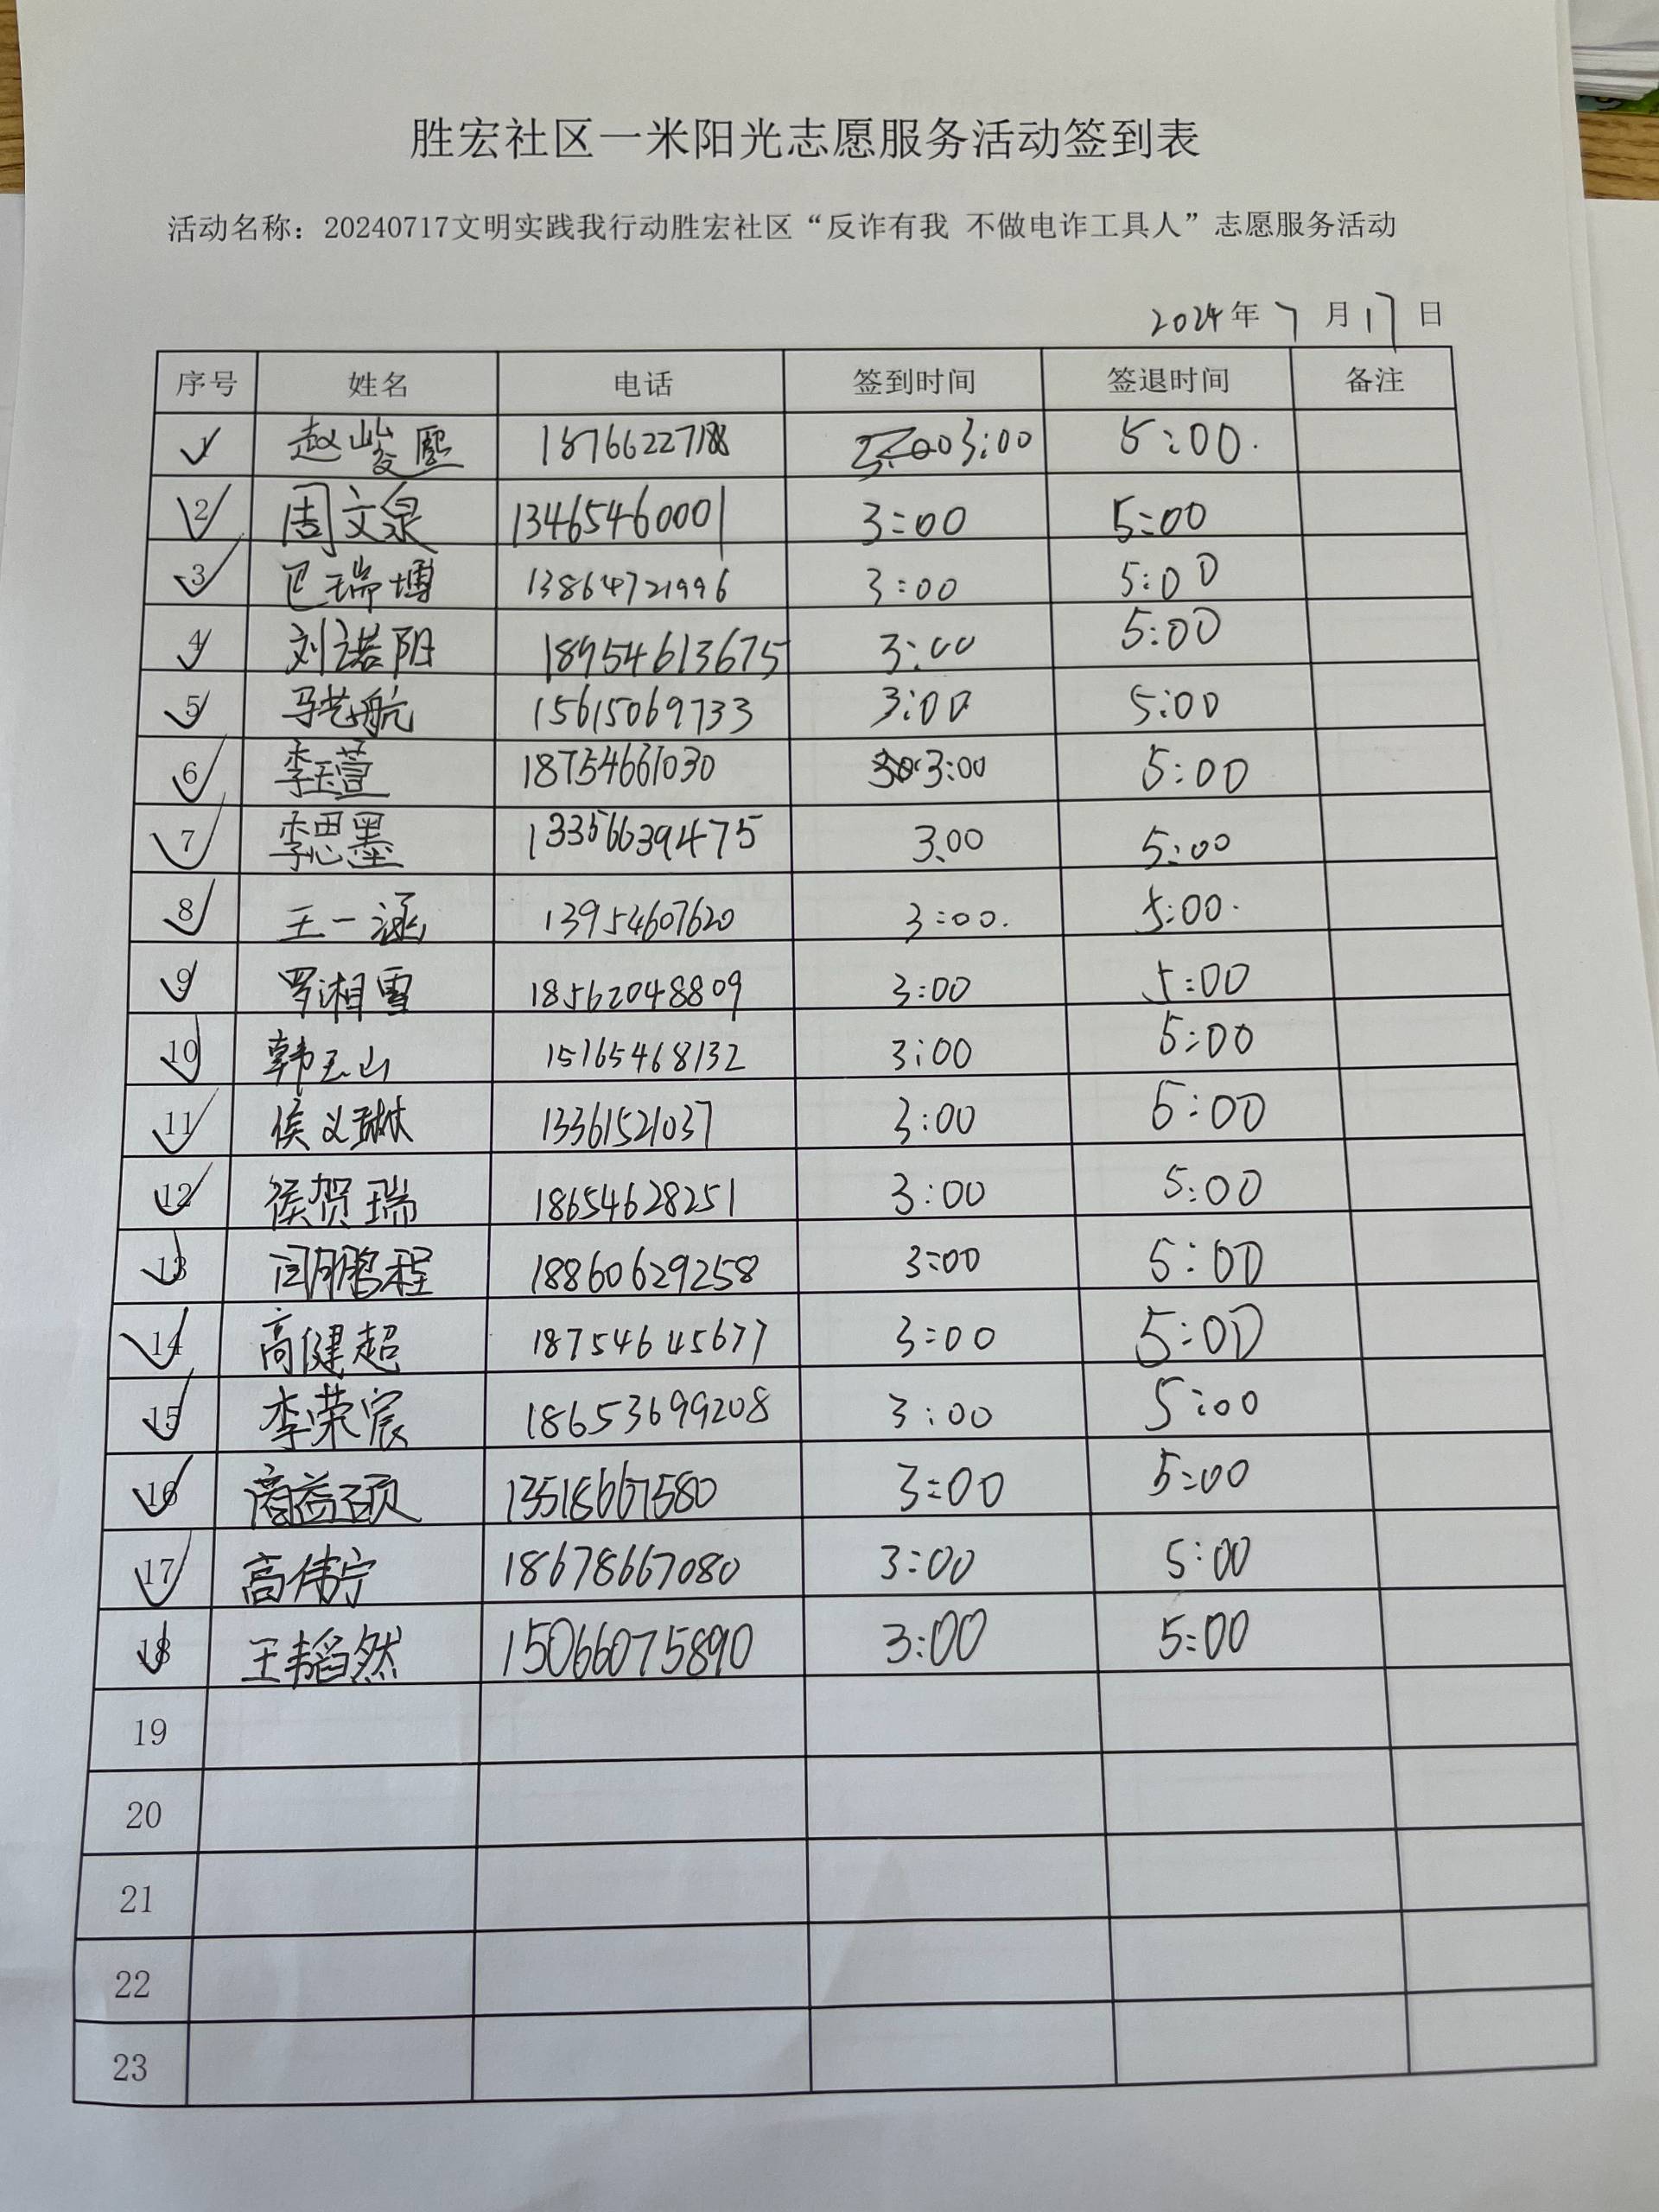 胜宏社区一米阳光志愿服务活动签到表
活动名称：20240717文明实践我行动胜宏社区“反诈有我 不做电诈工具人”志愿服务活动
2024年 7 月 17 日
序号 姓名 电话 签到时间 签退时间 备注
1 赵峻熙 3:00 5:00.
2 周文泉 13465460001 3:00 5:00
3 巴瑞博 13864721996 3:00 5:00
4 刘诺阳 18954613675 3:00 5:00
5 马艺航 15615069733 3:00 5:00
6 李玉萱 18754661030 3:00 5:00
7 李思墨 13356639475 3.00 5:00
8 王一涵 13954607620 3:00. 5:00.
9 罗湘雪 18562048809 3:00 5:00
10 韩玉山 15165468132 3:00 5:00
11 侯义琳 13361521037 3:00 5:00
12 侯贺瑞 18654628251 3:00 5:00
13 闫鹏程 18860629258 3:00 5:00
14 高健超 18754645677 3:00 5:00
15 李荣宸 18653699208 3:00 5:00
16 商益硕 13518667580 3:00 5:00
17 高伟宁 18678667080 3:00 5:00
18 王韬然 15066075890 3:00 5:00
19
20
21
22
23